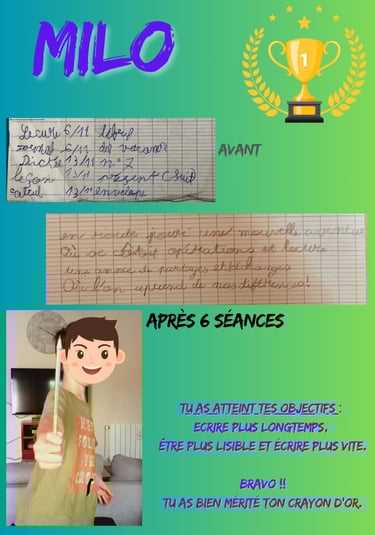 MILO
1
Lecture 6/11 
journal 6/11 des vacances
Dictée 13/11 n°7
leçon 13/11 présent (suite)
calcul 13/11 enveloppe
AVANT
en route pour une nouvelle aventure
Où se
opérations et lecture
une année de partages et d'échanges
Où l'on apprend de nos différences!
APRÈS 6 SÉANCES
TU AS ATTEINT TES OBJECTIFS :
ECRIRE PLUS LONGTEMPS,
ÊTRE PLUS LISIBLE ET ÉCRIRE PLUS VITE.
BRAVO !!
TU AS BIEN MÉRITÉ TON CRAYON D'OR.